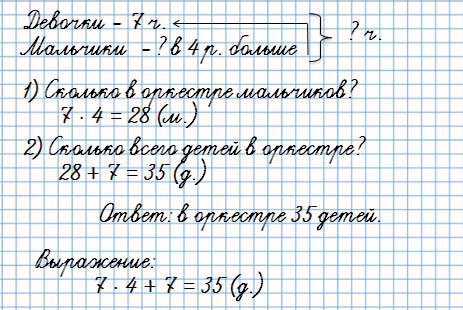 Девочки - 7 ч.
Мальчики - ? в 4 р. больше
? ч.
1) Сколько в оркестре мальчиков?
7 · 4 = 28 (м.)
2) Сколько всего детей в оркестре?
28 + 7 = 35 (д.)
Ответ: в оркестре 35 детей.
Выражение:
7 · 4 + 7 = 35 (д.)